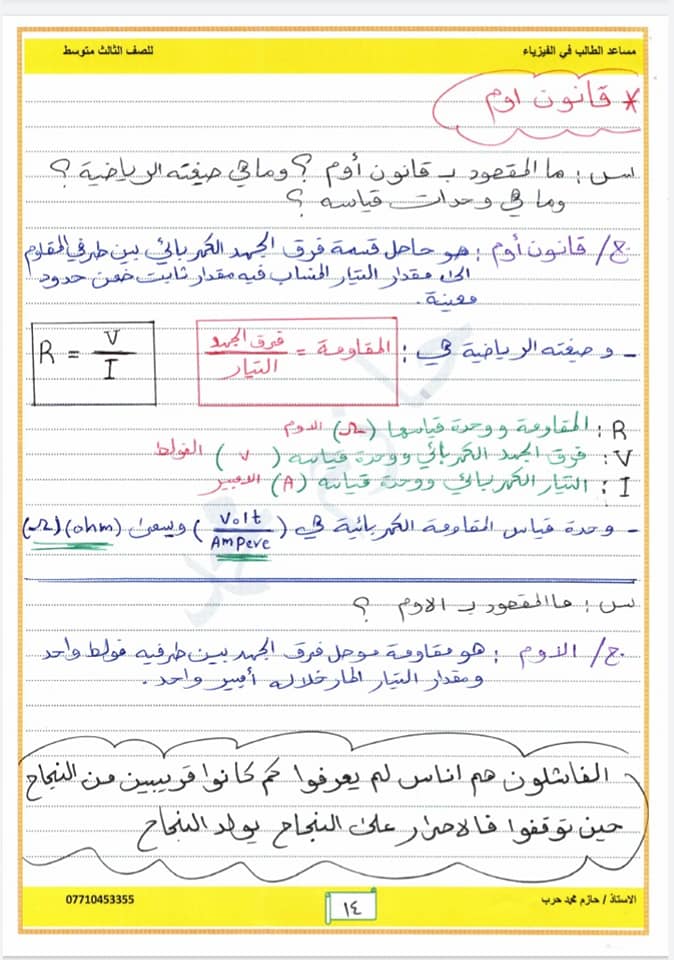 مساعد الطالب في الفيزياء
للصف الثالث متوسط
* قانون اوم
س: ما المقصود بـ قانون أوم ؟ وما هي صيغته الرياضية ؟
وما هي وحدات قياسه ؟
ج/ قانون أوم : هو حاصل قسمة فرق الجهد الكهربائي بين طرفي المقاوم
الى مقدار التيار المنساب فيه مقدار ثابت ضمن حدود
معينة.
- وصيغته الرياضية هي : المقاومة = فرق الجهد / التيار R = V / I
R : المقاومة ووحدة قياسها (Ω) الاوم
V : فرق الجهد الكهربائي ووحدة قياسه (V) الفولط
I : التيار الكهربائي ووحدة قياسه (A) الامبير
- وحدة قياس المقاومة الكهربائية هي (Volt / Ampere) ويسمى (ohm) (Ω)
س: ما المقصود بـ الاوم ؟
ج/ الاوم : هو مقاومة موصل فرق الجهد بين طرفيه فولط واحد
ومقدار التيار المار خلاله أمبير واحد.
الفاشلون هم اناس لم يعرفوا كم كانوا قريبين من النجاح
حين توقفوا فالاصرار على النجاح يولد النجاح
الاستاذ / حازم محمد حرب
١٤
07710453355